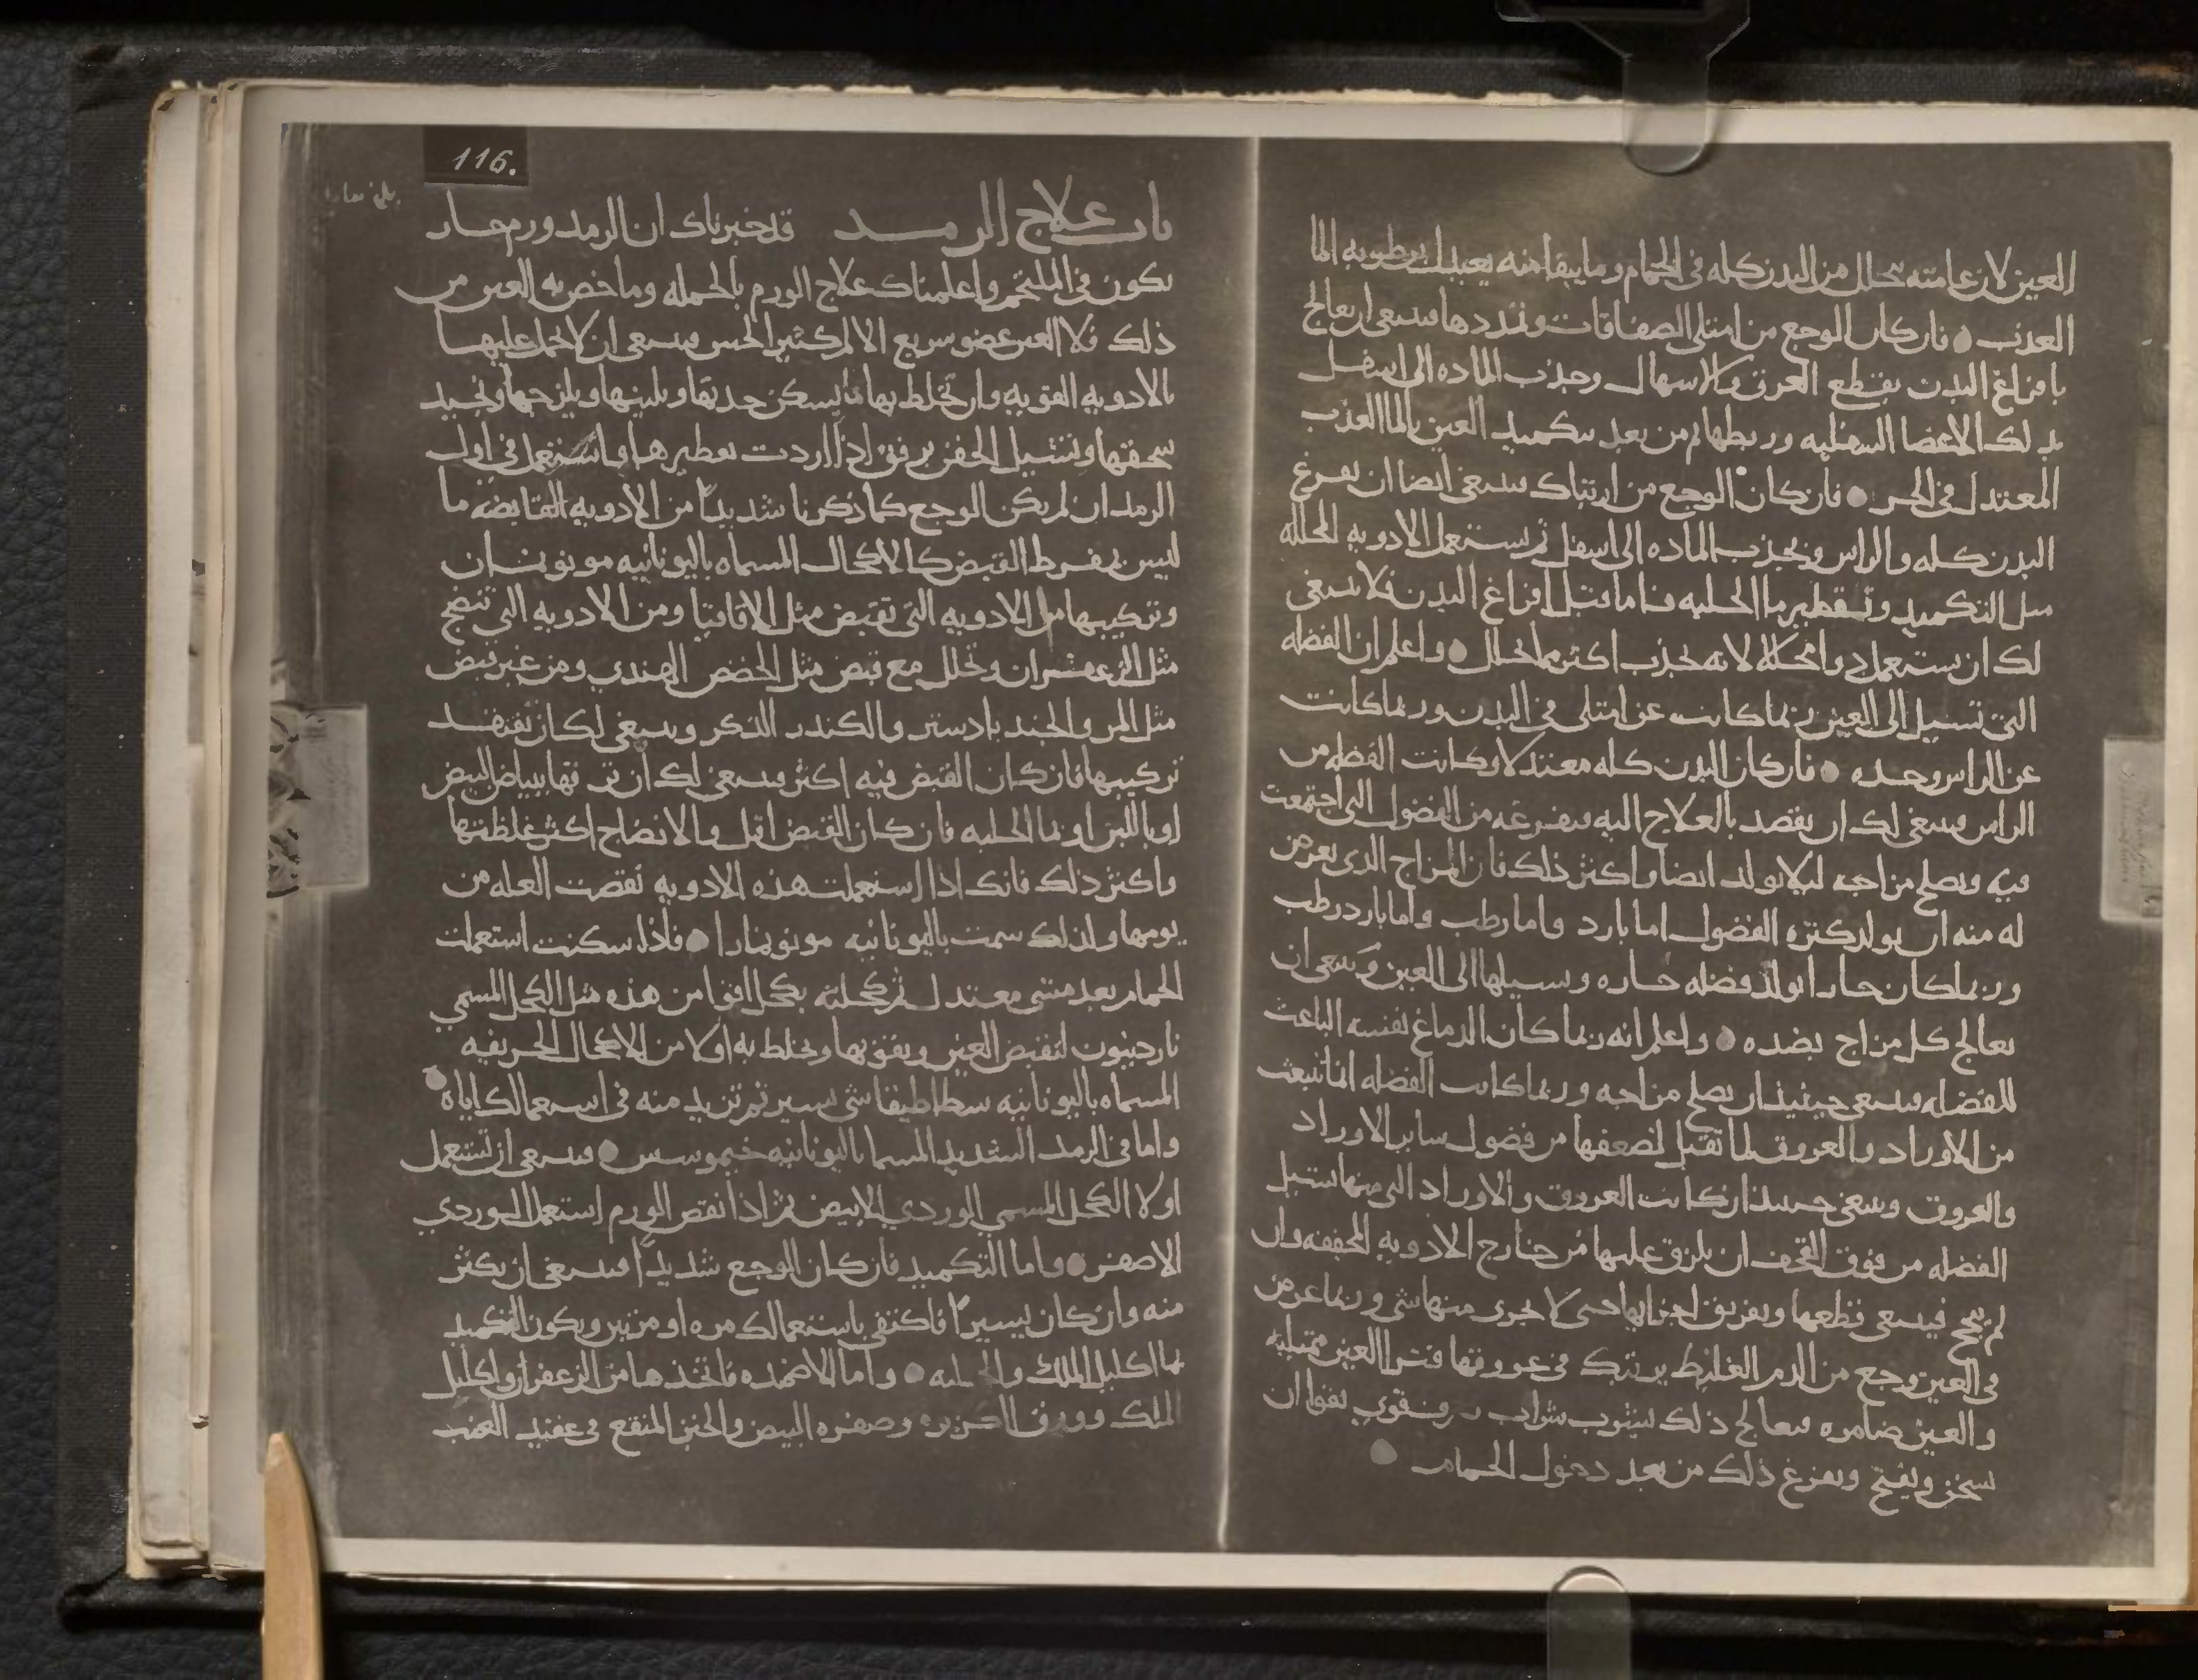 العين لان عامته يتحلل من البدن كله في الحمام وما يبقا منه يعتدل برطوبه الما
العذب ● فان كان الوجع من امتلى الصفاقات وتمددها فينبغي ان يعالج
بافراغ البدن بقطع العرق والاسهال وجذب الماده الى اسفل
بدلك الاعضا السفليه وربطها ثم من بعد بتكميد العين بالما العذب
المعتدل في الحر ● فان كان الوجع من ارتباك فينبغي ايضا ان يفرغ
البدن كله والراس ويجذب الماده الى اسفل ثم يستعمل الادويه المحلله
مثل التكميد وتقطير ما الحلبه فاما قبل افراغ البدن فلا ينبغي
لك ان تستعمل دوا محللا لانه يجذب اكثر مما يحلل ● واعلم ان الفضله
التي تسيل الى العين ربما كانت عن امتلى في البدن وربما كانت
عن الراس وحده ● فان كان البدن كله معتدلا وكانت الفضله من
الراس فينبغي لك ان يقصد بالعلاج اليه فيفرغه من الفضول التي اجتمعت
فيه ويصلح مزاجه ليلا يولد ايضا واكثر ذلك فان المزاج الذي يعرض
له منه ان يولد كثره الفضول اما بارد واما رطب واما بارد رطب
وربما كان حارا يولد فضله حاره ويسيلها الى العين وينبغي ان
يعالج كل مزاج بضده ● واعلم انه ربما كان الدماغ نفسه الباعث
للفضله فينبغي حينئذ ان يصلح مزاجه وربما كانت الفضله انما تنبعث
من الاوراد والعروق لما تقبل لضعفها من فضول ساير الاوراد
والعروق وينبغي حينئذ ان كانت العروق والاوراد التي منها تسيل
الفضله من فوق القحف ان يلزق عليها من خارج الادويه المجففه وان
لم ينجح فينبغي قطعها وتفريق اجزايها حتى لا يجري منها شي وربما عرض
في العين وجع من الدم الغليظ يرتبك في عروقها فترا العين ممتليه
والعين ضامره فيعالج ذلك بشرب شراب صرف قوي يقوا ان
يسخن ويفتح ويفرغ ذلك من بعد دخول الحمام ●
116.
باب علاج الرمد قد خبرناك ان الرمد ورم حار
يكون في الملتحم واعلمناك علاج الورم بالجمله وما خص به العين من
ذلك فلان العين عضو سريع الالم كثير الحس فينبغي ان لا يحمل عليها
بالادويه القويه وان تخلط بها ما يسكن حدتها ويلينها ويلزجها ويجيد
سحقها وتشيل الجفن برفق اذا اردت تقطيرها واستعمل في اول
الرمد ان لم يكن الوجع كما ذكرنا شديدا من الادويه القابضه ما
ليس بمفرط القبض كالاكحال المسماه باليونانيه مونويمران
وتركيبها من الادويه التي تقبض مثل الاقاقيا ومن الادويه التي تنضج
مثل الزعفران وتحلل مع قبض مثل الحضض الهندي ومن غير قبض
مثل المر والجندبادستر والكندر الذكر وينبغي لك ان تفتقد
تركيبها فان كان القبض فيه اكثر فينبغي لك ان ترققها ببياض البيض
او باللبن او بما الحلبه فان كان القبض اقل والانضاج اكثر غلظتها
واكثر ذلك فانك اذا استعملت هذه الادويه نقصت العله من
يومها ولذلك سميت باليونانيه مونويمارا ● فاذا سكنت استعملت
الحمام بعد مشي معتدل ثم كحلته بكحل اقوا من هذه مثل الكحل المسمى
ناردينون لتقبض العين ويقويها ويخلط به اولا من الاكحال الحريفيه
المسماه باليونانيه سطاطيقا شي يسير ثم تزيد منه في استعمالك اياه ●
واما في الرمد الشديد المسما باليونانيه خيموسس ● فينبغي ان تستعمل
اولا الكحل المسمى الوردي الابيض ثم اذا نقص الورم استعمل الوردي
الاصفر ● واما التكميد فان كان الوجع شديدا فينبغي ان يكثر
منه وان كان يسيرا فاكتفى باستعمالك مره او مرتين ويكون التكميد
بما اكليل الملك والحلبه ● واما الاضمده فاتخذها من الزعفران واكليل
الملك وورق الكزبره وصفره البيض والخبز المنقع في عقيد العنب